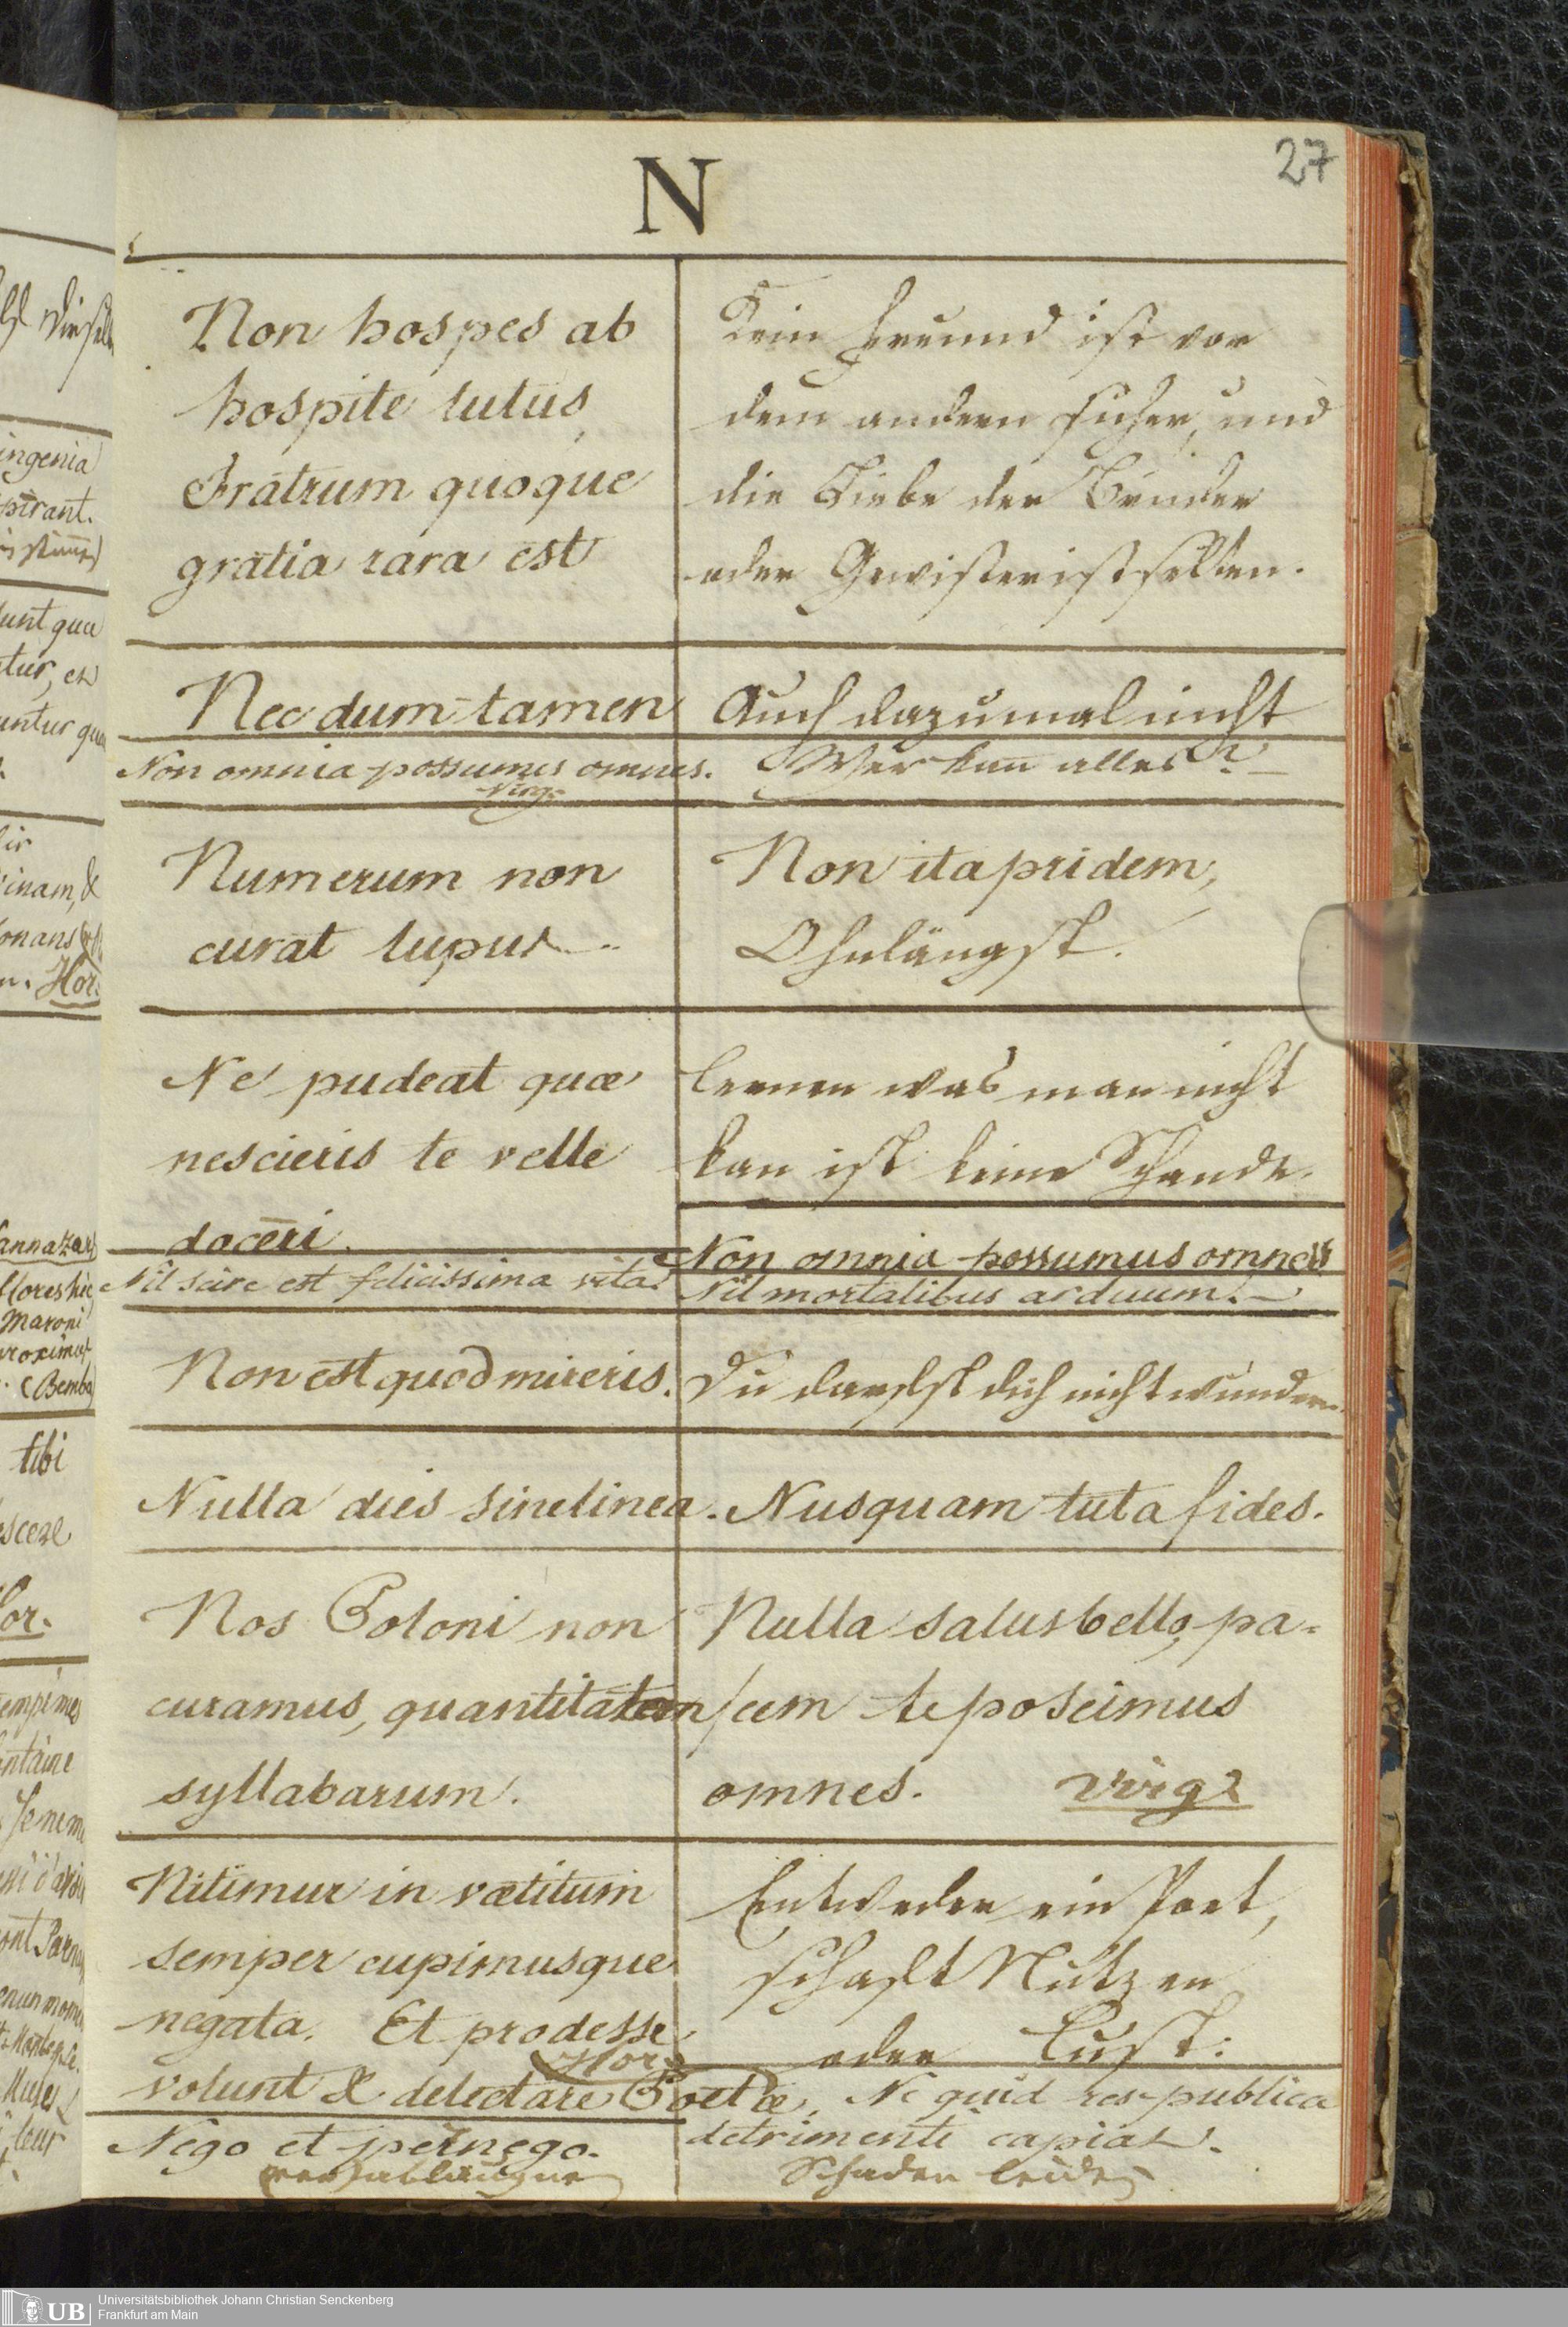 27
N
Non hospes ab
hospite tutus,
Fratrum quoque
gratia rara est
Kein Freund ist vor
dem andern sicher, und
die Liebe der Brüder
oder Gewister ist selten.
Nec dum tamen
Auch dazumal nicht
Non omnia possumus omnes.
Virg.
Wer kan̄ alles?
Numerum non
curat lupus
Non ita pridem,
Ohnlängst.
Ne pudeat quæ
nescieris te velle
doceri.
Lernen was man nicht
kan ist keine Schande.
Non omnia possumus omnes
Nil scire est felicissima vita.
Nil mortalibus arduum.
Non est quod mireris.
Du darfst dich nicht wundern.
Nulla dies sine linea.
Nusquam tuta fides.
Nos Poloni non
curamus, quantitatem
syllabarum.
Nulla salus bello, pa-
cem te poscimus
omnes. Virg.
Nitimur in vetitum
semper cupimusque
negata. Et prodesse
Hor.
volunt & delectare Poetæ.
Entweder ein Poet,
schaft Nutzen
oder Lust:
Ne quid res publica
detrimenti capiat.
Schaden leide
Nego et pernego.
ingenia
pirant.
unt quæ
tur, et
untur quæ
inam, &
Hor.
annazar
Maroni
proximus
(Bemba
tibi
Hor.
leur
UB
Universitätsbibliothek Johann Christian Senckenberg
Frankfurt am Main